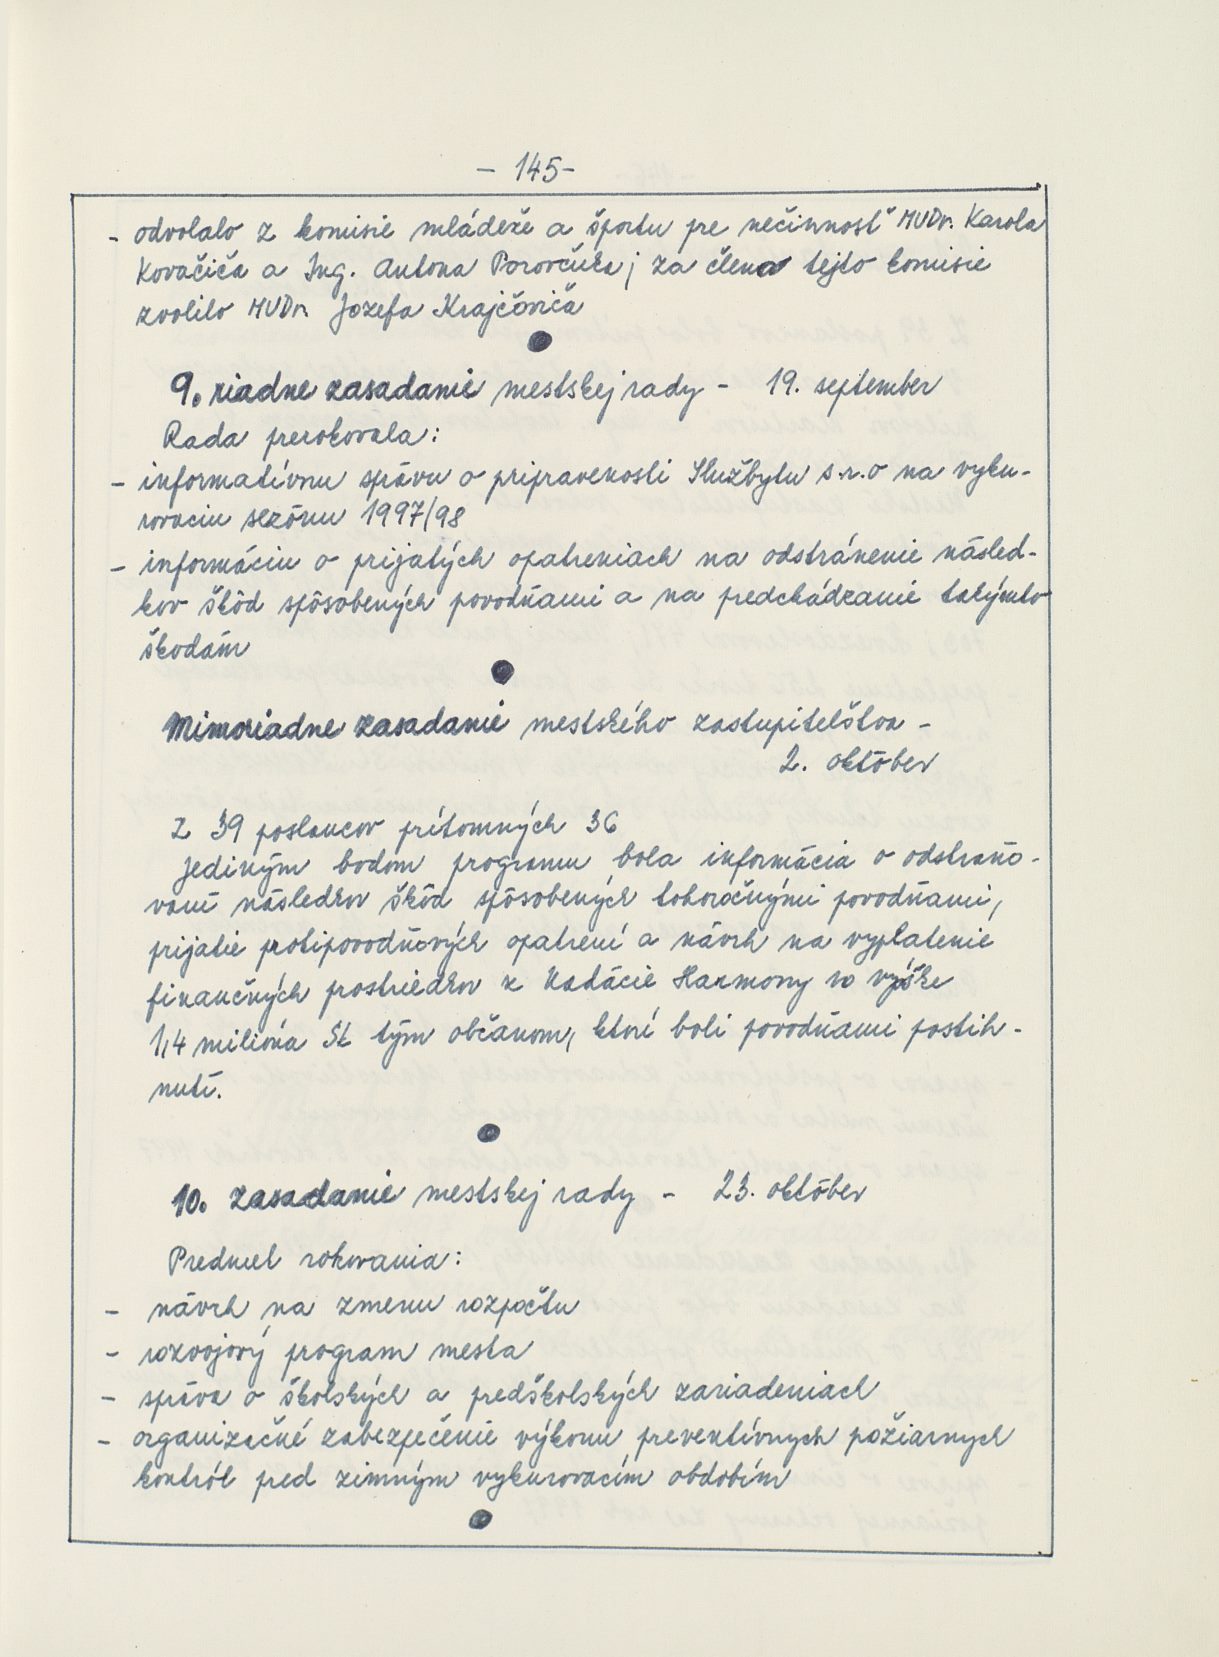 - 145 -
- odvolalo z komisie mládeže a športu pre nečinnosť MUDr. Karola
Kovačiča a Ing. Antona Porovčuka; za člena tejto komisie
zvolilo MUDr. Jozefa Krajčoviča
9. riadne zasadanie mestskej rady - 19. september
Rada prerokovala:
- informatívnu správu o pripravenosti Službytu s.r.o na vyku-
rovaciu sezónu 1997/98
- informáciu o prijatých opatreniach na odstránenie násled-
kov škôd spôsobených povodňami a na predchádzanie takýmto
škodám
Mimoriadne zasadanie mestského zastupiteľstva -
2. október
Z 39 poslancov prítomných 36
Jediným bodom programu bola informácia o odstraňo-
vaní následkov škôd spôsobených tohoročnými povodňami,
prijatie protipovodňových opatrení a návrh na vyplatenie
finančných prostriedkov z Nadácie Harmony vo výške
1,4 milióna Sk tým občanom, ktorí boli povodňami postih-
nutí.
10. zasadanie mestskej rady - 23. október
Predmet rokovania:
- návrh na zmenu rozpočtu
- rozvojový program mesta
- správa o školských a predškolských zariadeniach
- organizačné zabezpečenie výkonu preventívnych požiarnych
kontról pred zimným vykurovacím obdobím